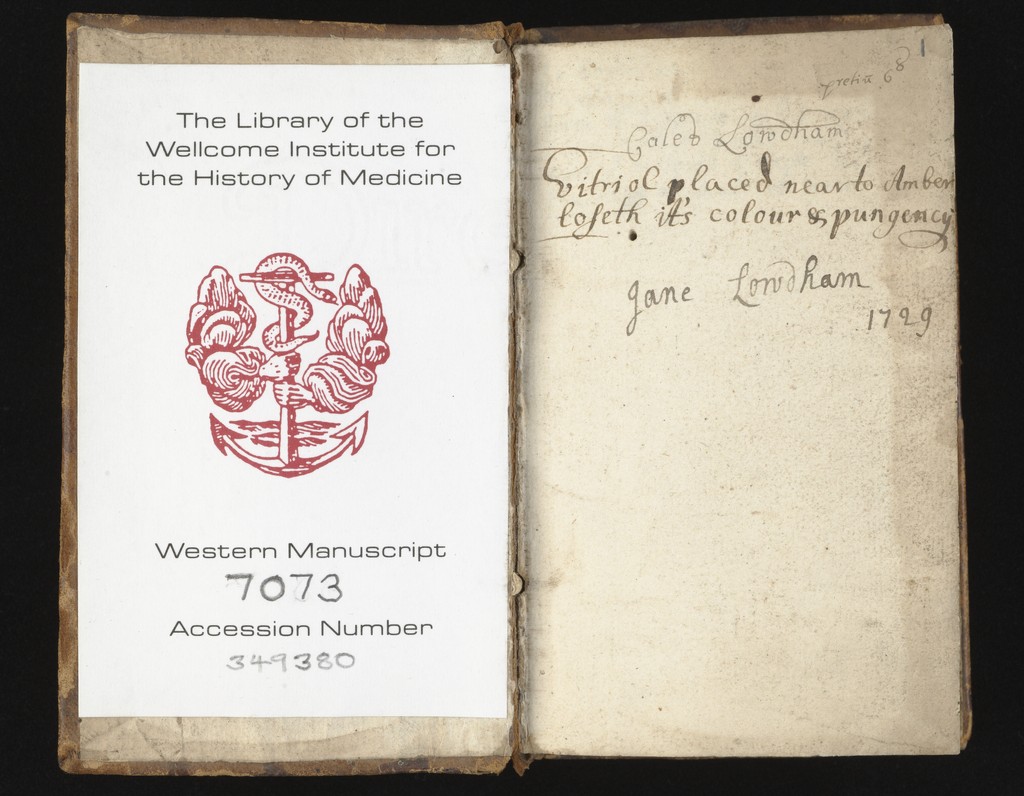 The Library of the
Wellcome Institute for
the History of Medicine
Western Manuscript
7073
Accession Number
349380
1
pretia 6 8
Caleb Lowdham
Vitriol placed near to Amber
loseth it's colour & pungency
Jane Lowdham
1729